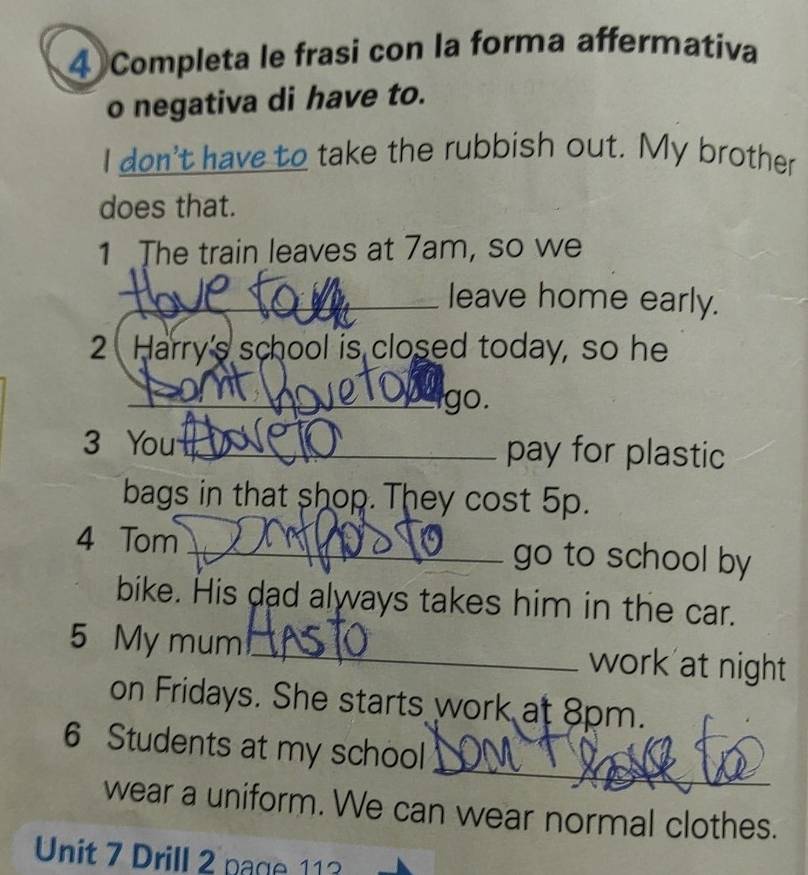 4 Completa le frasi con la forma affermativa
o negativa di have to.
I don't have to take the rubbish out. My brother
does that.
1 The train leaves at 7am, so we
Have to leave home early.
2 Harry's school is closed today, so he
Don't have to go.
3 You Have to pay for plastic
bags in that shop. They cost 5p.
4 Tom Don't has to go to school by
bike. His dad always takes him in the car.
5 My mum HAS TO work at night
on Fridays. She starts work at 8pm.
6 Students at my school Don't have to
wear a uniform. We can wear normal clothes.
Unit 7 Drill 2 page 112